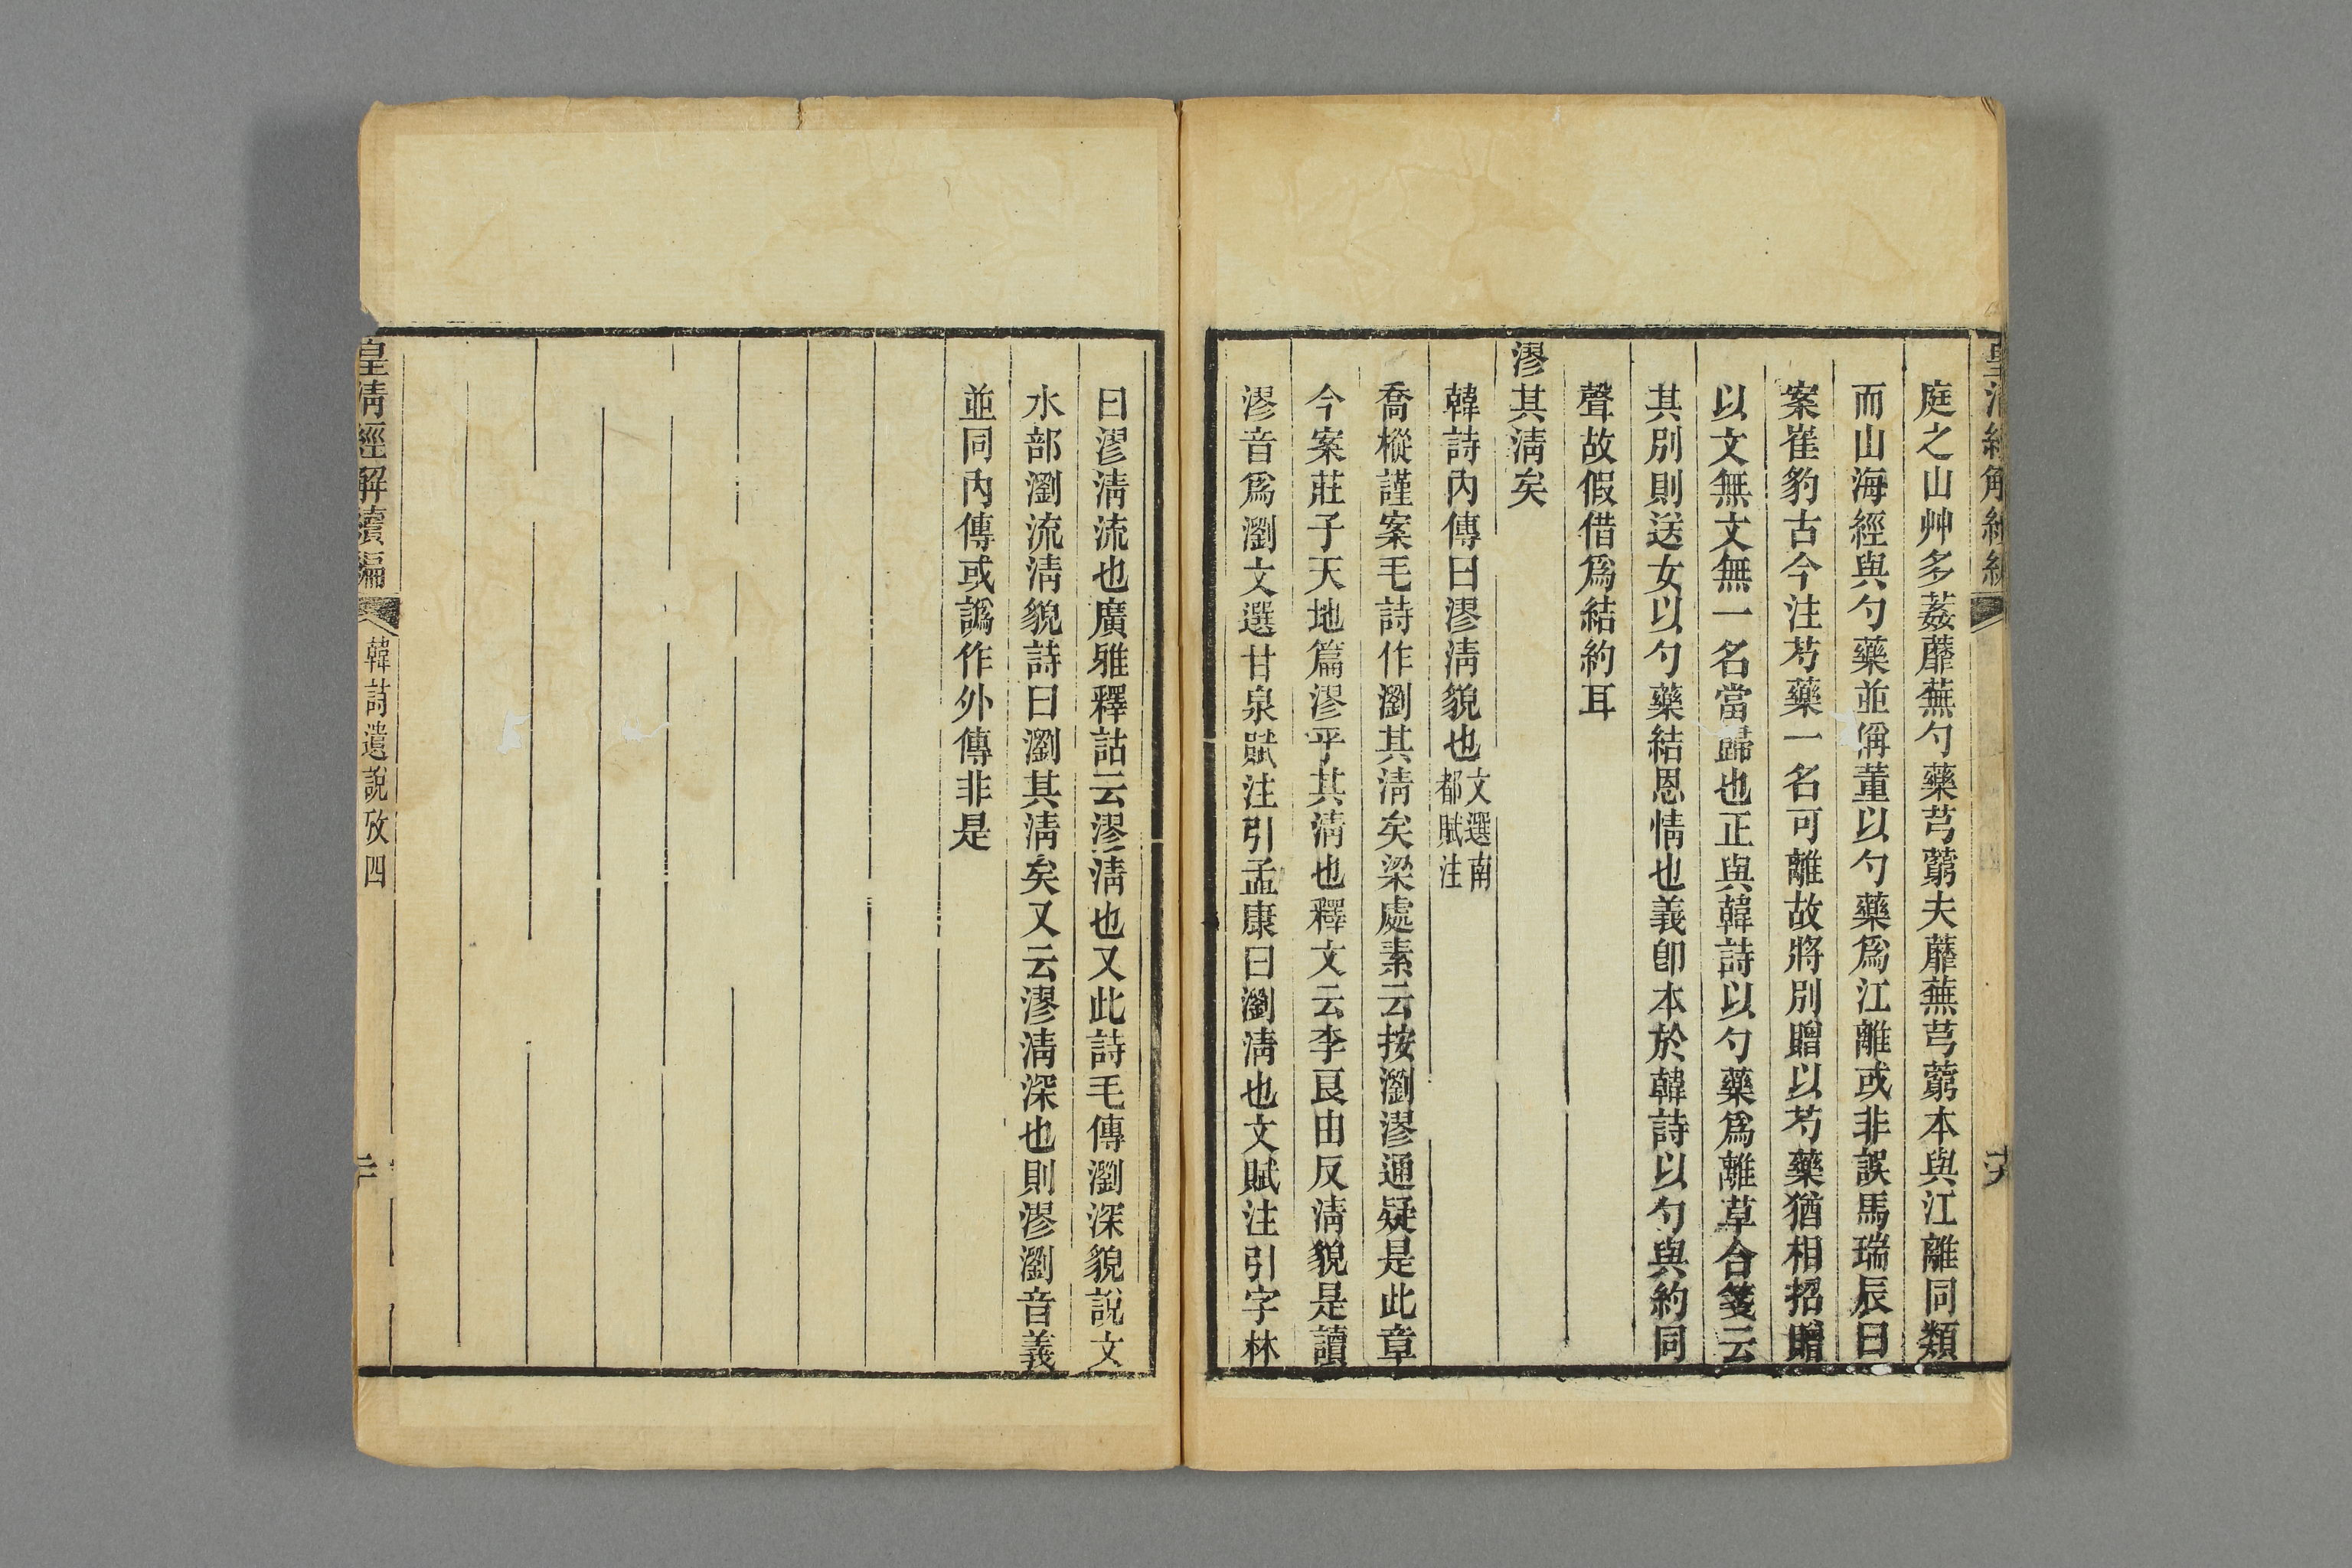 庭之山艸多葌蘼蕪勺藥芎藭夫蘼蕪芎藭本與江離同類
而山海經與勺藥並偁董以勺藥爲江離或非誤馬瑞辰曰
案崔豹古今注芍藥一名可離故將別贈以芍藥猶相招贈
以文無文無一名當歸也正與韓詩以勺藥爲離草合箋云
其別則送女以勺藥結恩情也義卽本於韓詩以勺與約同
聲故假借爲結約耳
漻其淸矣
韓詩內傳曰漻淸貌也文選南
都賦注
喬樅謹案毛詩作瀏其淸矣梁處素云按瀏漻通疑是此章
今案莊子天地篇漻乎其淸也釋文云李良由反淸貌是讀
漻音爲瀏文選甘泉賦注引孟康曰瀏淸也文賦注引字林
曰漻淸流也廣雅釋詁云漻淸也又此詩毛傳瀏深貌說文
水部瀏流淸貌詩曰瀏其淸矣又云漻淸深也則漻瀏音義
並同內傳或譌作外傳非是
皇淸經解續編
韓詩遺說攷四